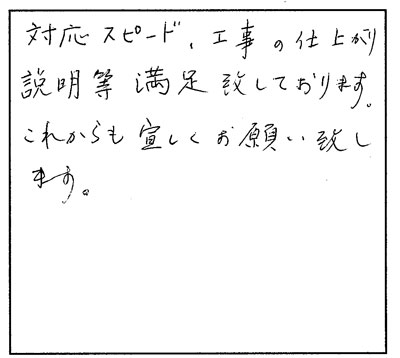 対応スピード、工事の仕上がり
説明等満足致しております。
これからも宜しくお願い致し
ます。